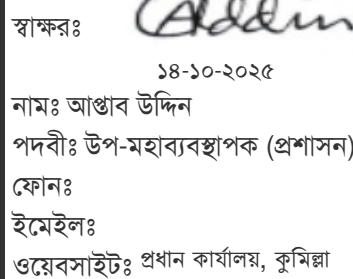 স্বাক্ষরঃ
১৪-১০-২০২৫
নামঃ আপ্তাব উদ্দিন
পদবীঃ উপ-মহাব্যবস্থাপক (প্রশাসন)
ফোনঃ
ইমেইলঃ
ওয়েবসাইটঃ প্রধান কার্যালয়, কুমিল্লা